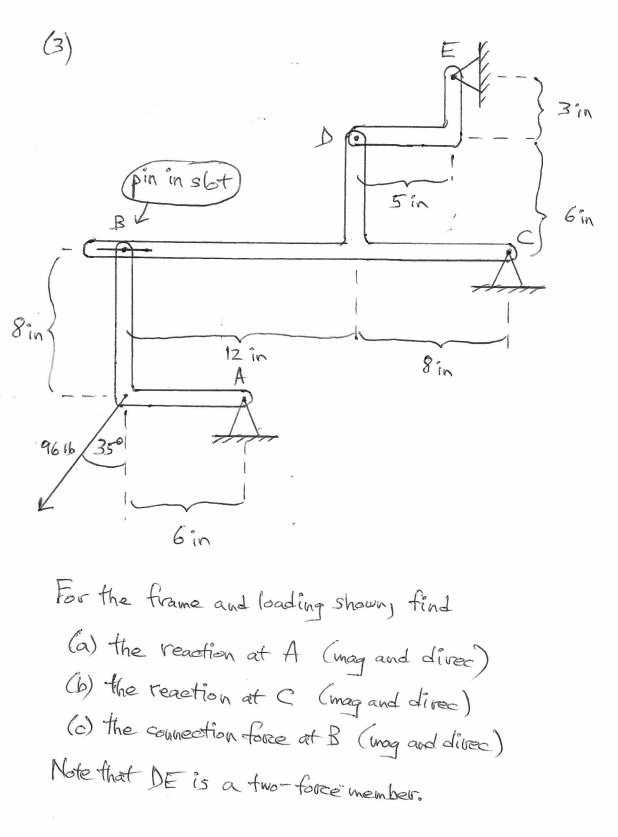 (3)
E
3 in
D
pin in slot
5 in
6 in
B
C
8 in
12 in
8 in
A
96 lb
35°
6 in
For the frame and loading shown, find
(a) the reaction at A (mag and direc)
(b) the reaction at C (mag and direc)
(c) the connection force at B (mag and direc)
Note that DE is a two-force member.